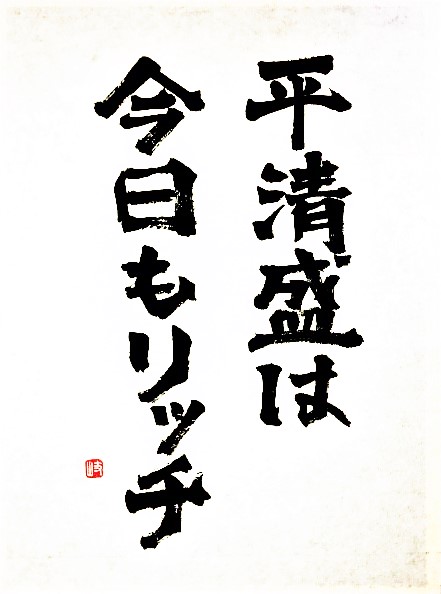 平清盛は
今日もリッチ